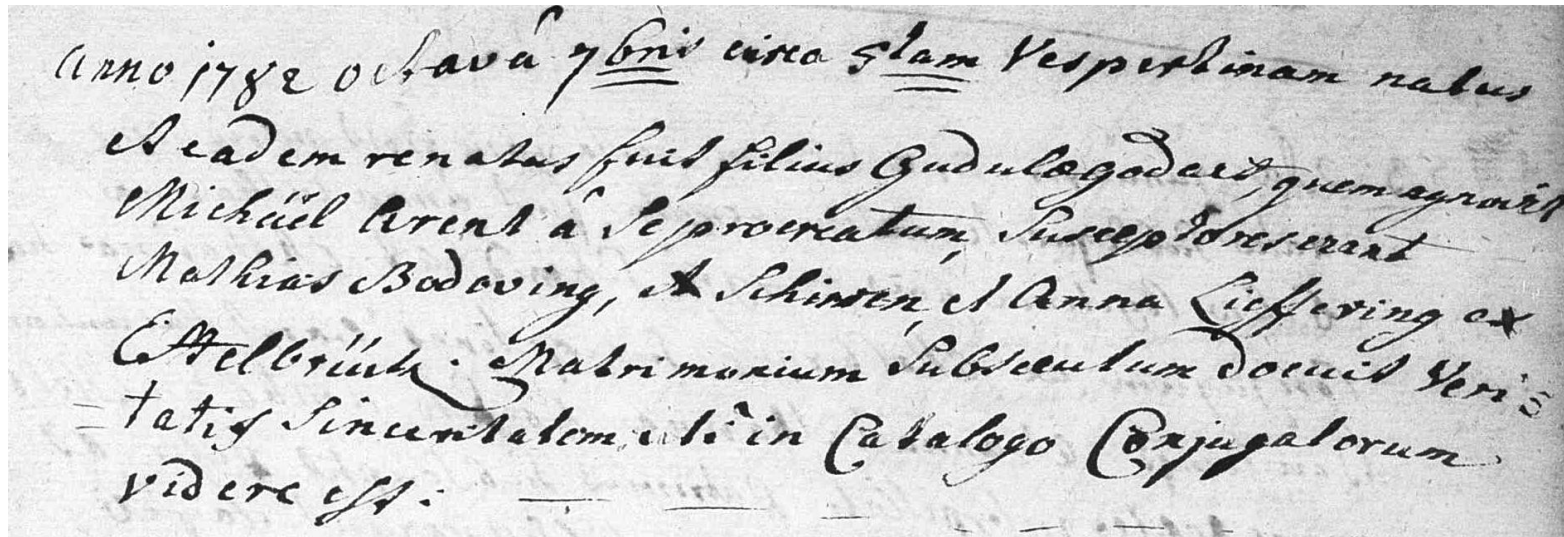 Anno 1782 octavâ 7bris circa 5tam Vespertinam natus
et eadem renatus fuit filius Gudulæ godert, quem agnovit
Michäel Arent â se procreatum, Susceptores erant
Mathias Bodoving, et Schinsen, et Anna Lieffering ex
Ettelbrück. Matrimonium Subsecutum docuit Veri=
=tatis Sinceritatem uti in Catalogo Conjugatorum
videre est.